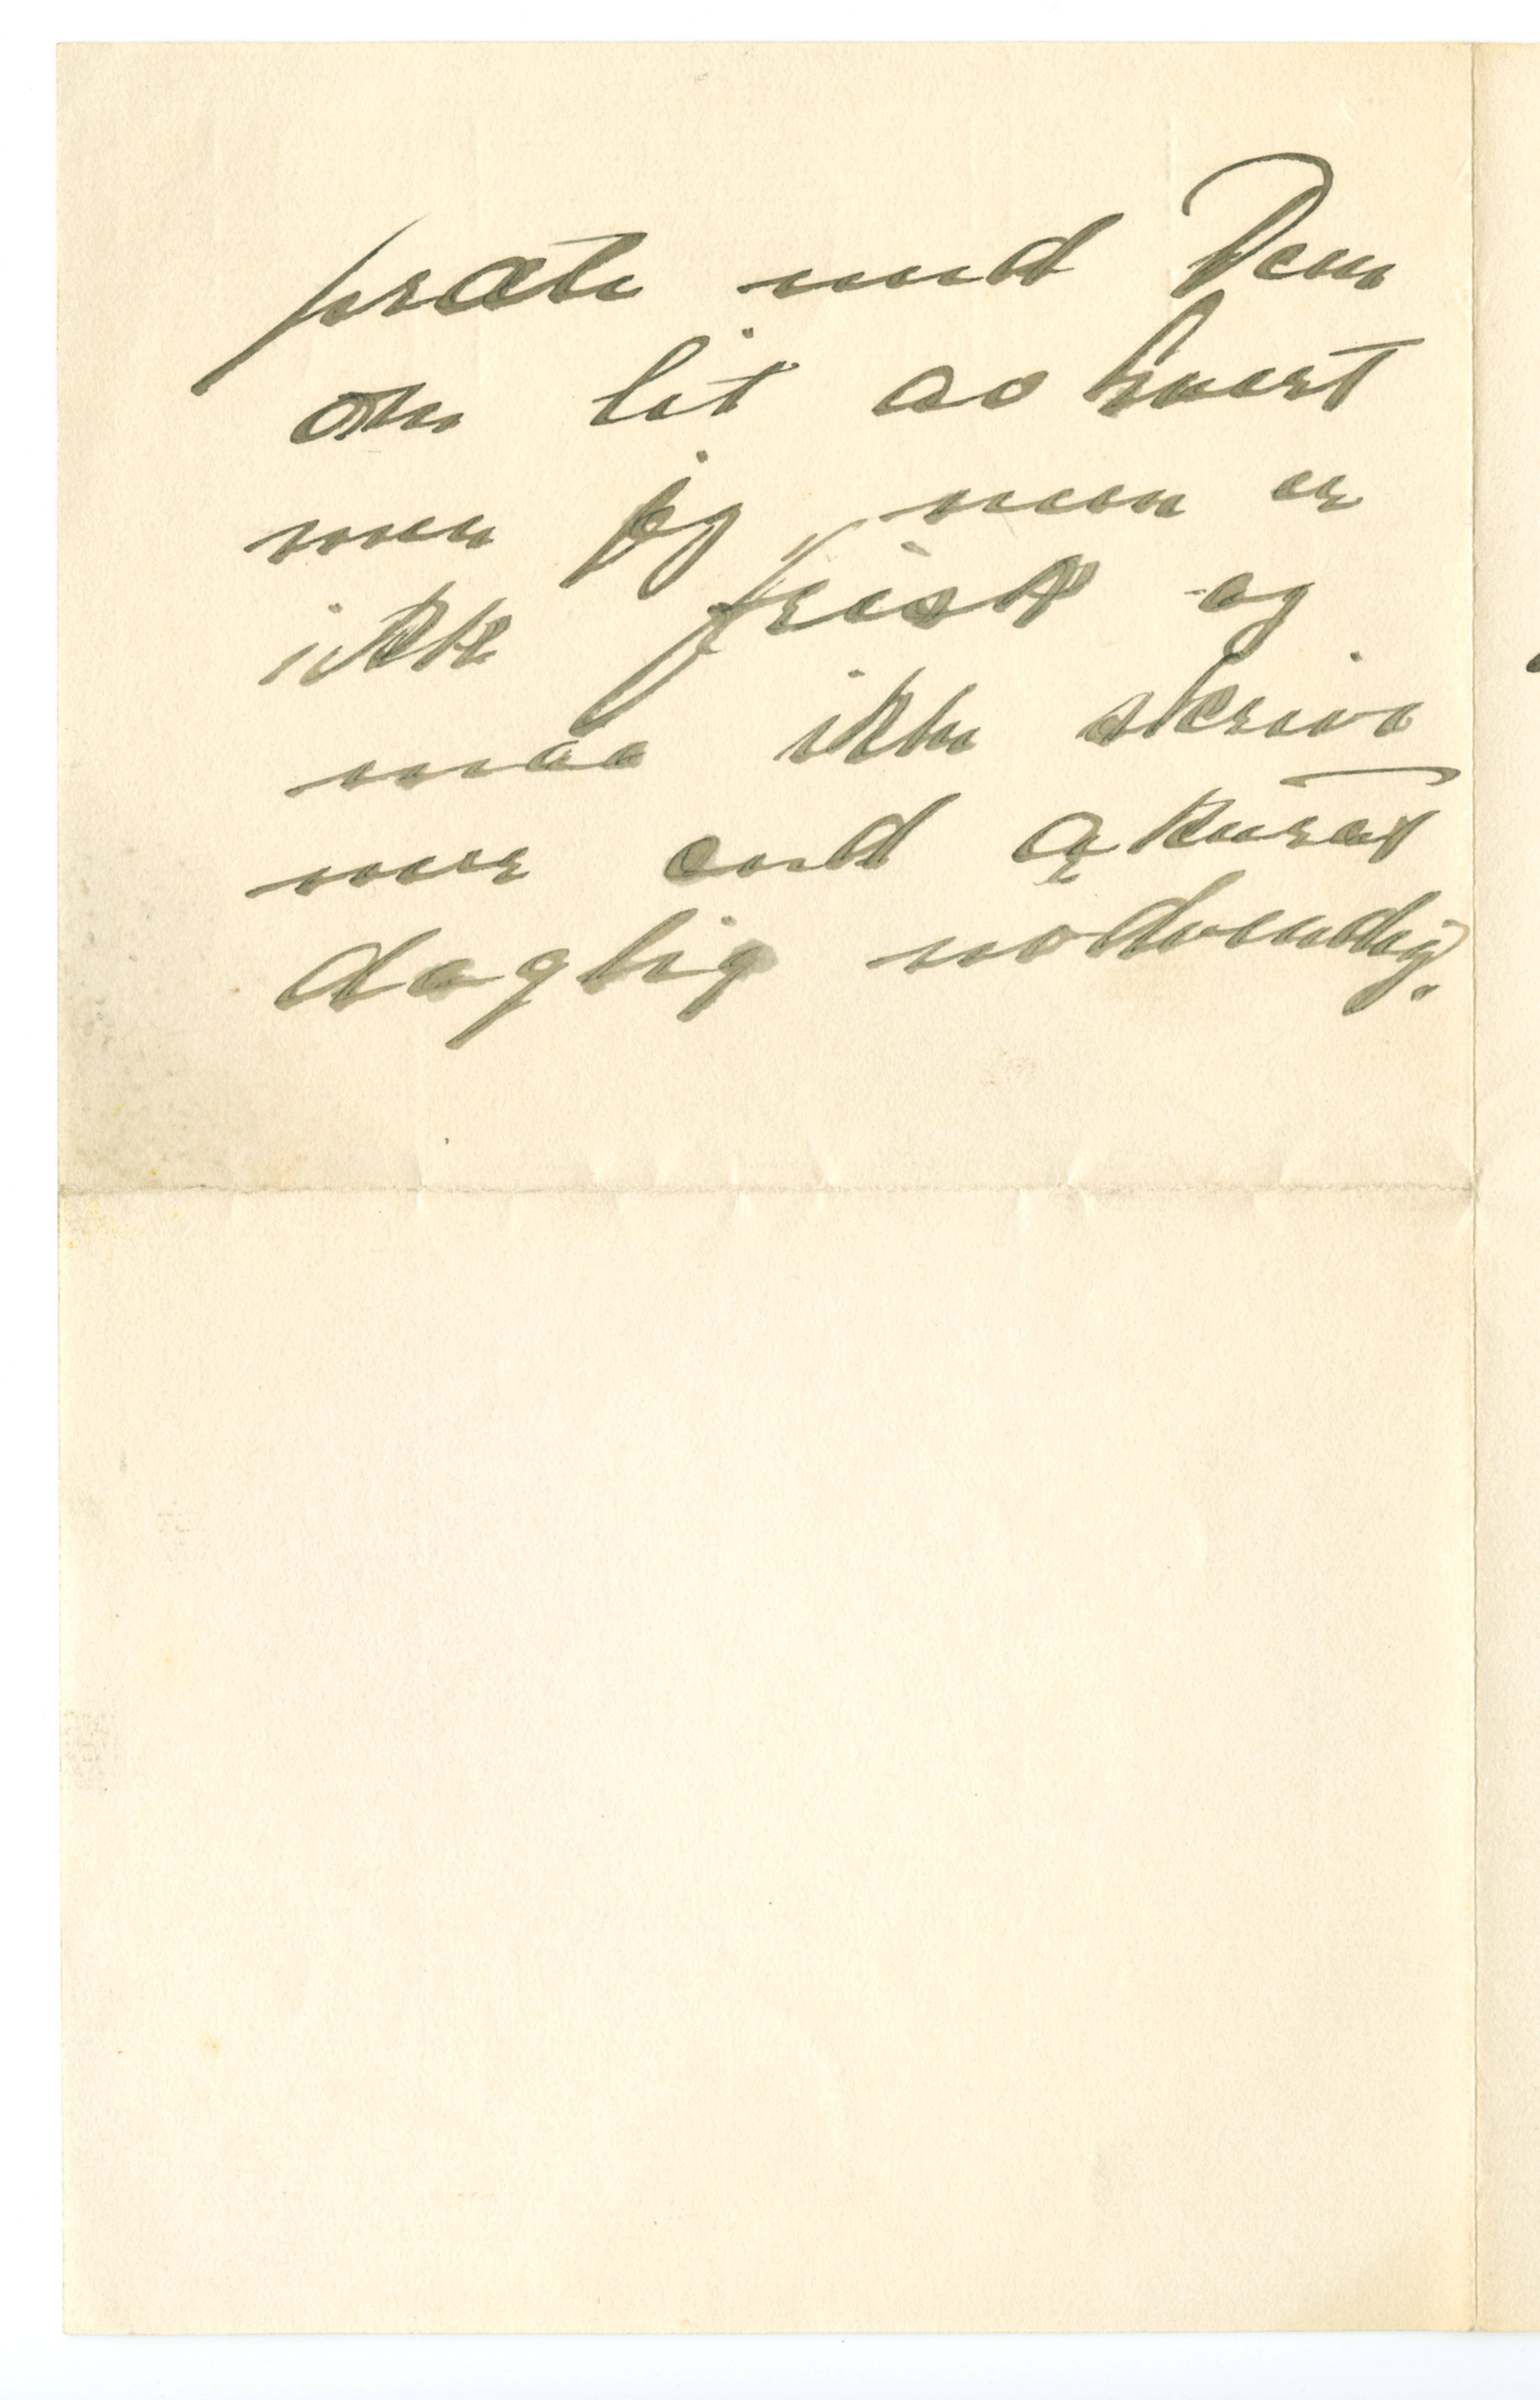 prate med Dem
om lit av hvert
men jeg men er
ikke frisk og
maa ikke skrive
mer end akurat
daglig nödvendig.